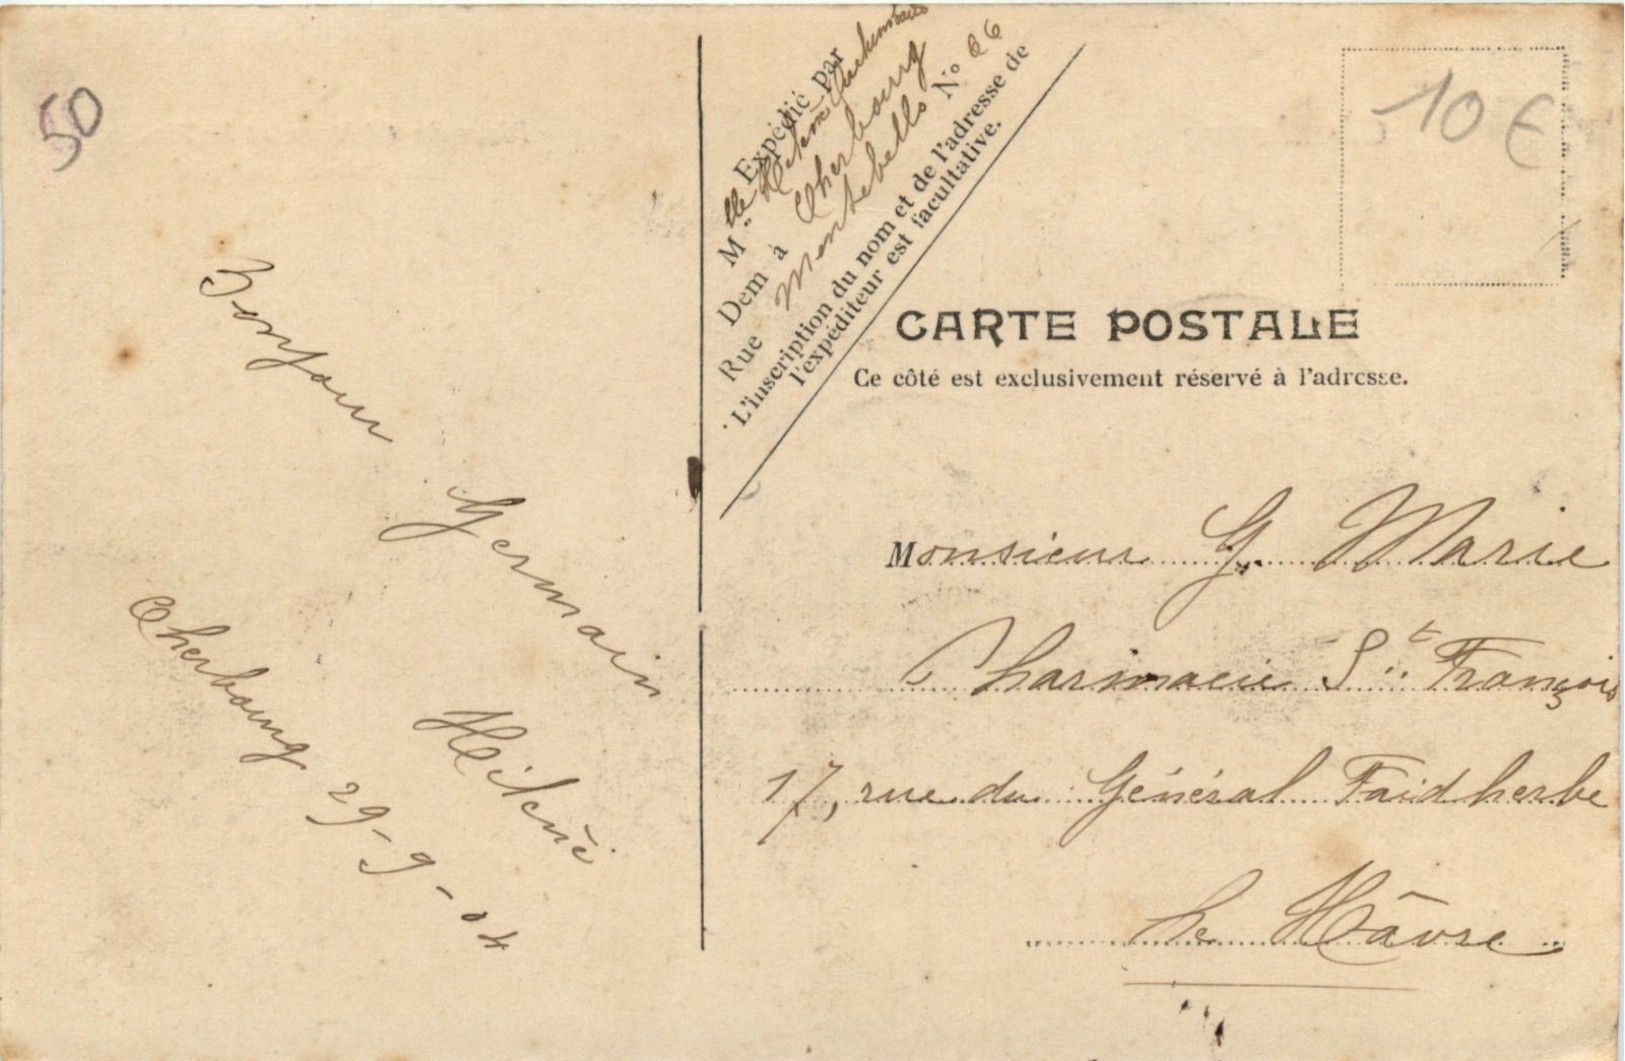 50
Bonjour
Germain
Hélène
Cherbourg 29-9-04
Expédié par
Mlle Hélène
Dem à Cherbourg
Rue Montebello No 66
L'inscription du nom et de l'adresse de
l'expéditeur est facultative.
10 €
CARTE POSTALE
Ce côté est exclusivement réservé à l'adresse.
Monsieur G. Marie
Pharmacie St François
17, rue du Général Faidherbe
Le Hâvre